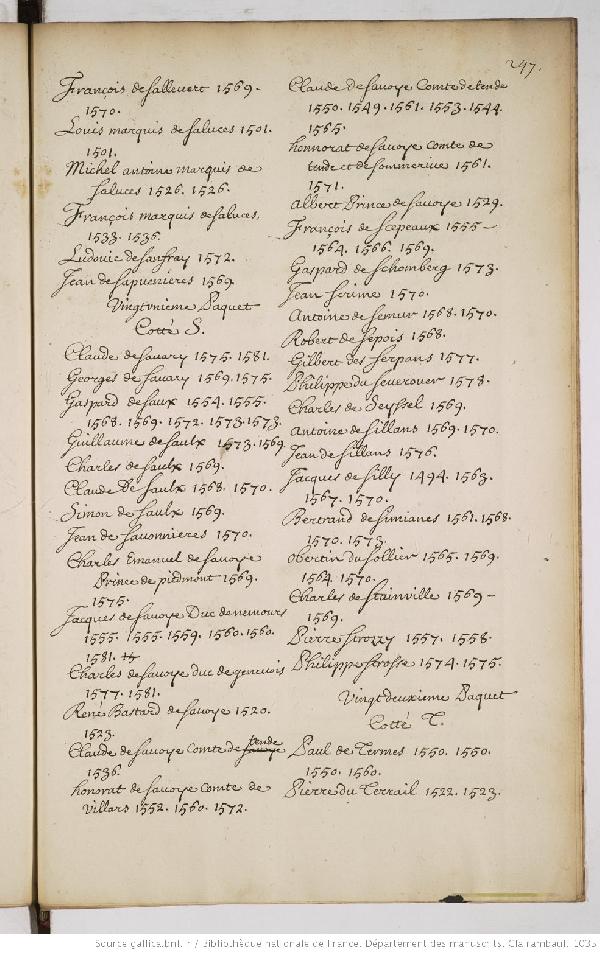 247.
François de Sallevert 1569.
1570.
Louis marquis de Saluces 1501.
1501.
Michel antoine marquis de
Saluces 1526. 1526.
François marquis de Saluces,
1533. 1536.
Ludovic de Sanfray 1572.
Jean de Sapvenieres 1569
Vingtunieme Paquet
Cotté S.
Claude de Savary 1575. 1581.
Georges de Savary 1569. 1575.
Gaspard de Saux 1554. 1555.
1568. 1569. 1572. 1573. 1573.
Guillaume de Saulx 1573. 1569
Charles de Saulx 1569.
Claude De Saulx 1568. 1570.
Simon de Saulx 1569.
Jean de Savonnieres 1570.
Charles Emanuel de Savoye
Prince de piedmont 1569.
1575.
Jacques de Savoye Duc de nemours
1555. 1555. 1559. 1560. 1560.
1581.
Charles de Savoye duc de genevois
1577. 1581.
René Bastard de Savoye 1520.
1523.
Claude de Savoye Comte de Savoye tende
1536.
honorat de Savoye Comte de
Villars 1552. 1560. 1572.
Claude de Savoye Comte de tende
1550. 1549. 1561. 1553. 1544.
1565.
honnorat de Savoye Comte de
tende et de Sommerive 1561.
1571.
Albert Prince de Savoye 1529.
François de Scepeaux 1555–
1564. 1566. 1569.
Gaspard de Schomberg 1573.
Jean Serime 1570.
Antoine de Semur 1568. 1570.
Robert de Sepois 1568.
Gilbert des Serpans 1577.
Philippe du Severouer 1578.
Charles de Seyssel 1569.
Antoine de Sillans 1569. 1570.
Jean de Sillans 1576.
Jacques de Silly 1494. 1563.
1567. 1570.
Bertrand de Simianes 1561. 1568.
1570. 1573.
Obertin du Sollier 1565. 1569.
1564. 1570.
Charles de Stainville 1569–
1569.
Pierre Strozzy 1557. 1558.
Philippe Strosse 1574. 1575.
Vingt deuxieme Paquet
Cotté T.
Paul de Termes 1550. 1550.
1550. 1560.
Pierre du Terrail 1522. 1523.
Source gallica.bnf.fr / Bibliothèque nationale de France. Département des manuscrits. Clairambault 1035